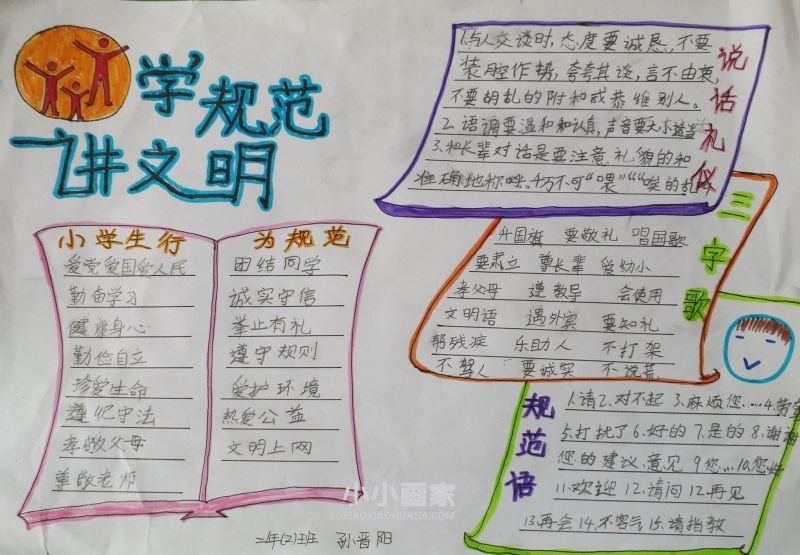 学规范
讲文明
小学生行
为规范
爱党爱国爱人民
勤奋学习
健康身心
勤俭自立
珍爱生命
遵纪守法
孝敬父母
尊敬老师
团结同学
诚实守信
举止有礼
遵守规则
爱护环境
热爱公益
文明上网
说话礼仪
1.与人交谈时,态度要诚恳,不要
装腔作势,夸夸其谈,言不由衷,
不要胡乱的附和或恭维别人。
2.语调要温和和认真,声音要大小适当
3.和长辈对话是要注意礼貌的和
准确地称呼。4万不可“喂”“唉的乱
三字歌
升国旗 要敬礼 唱国歌
要肃立 尊长辈 爱幼小
孝父母 遵教导 会使用
文明语 遇外宾 要知礼
帮残疾 乐助人 不打架
不骂人 要诚实 不说荒
规范语
1.请2.对不起 3.麻烦您....4.劳
5.打扰了6.好的7.是的8.谢谢
您的建议.意见 9您...10.您
11.欢迎 12.请问 12.再见
13.再会14.不客气15.请指教
二年(2)班 孙晋阳
小小画家
XIAOXIAOHUAJIA.COM